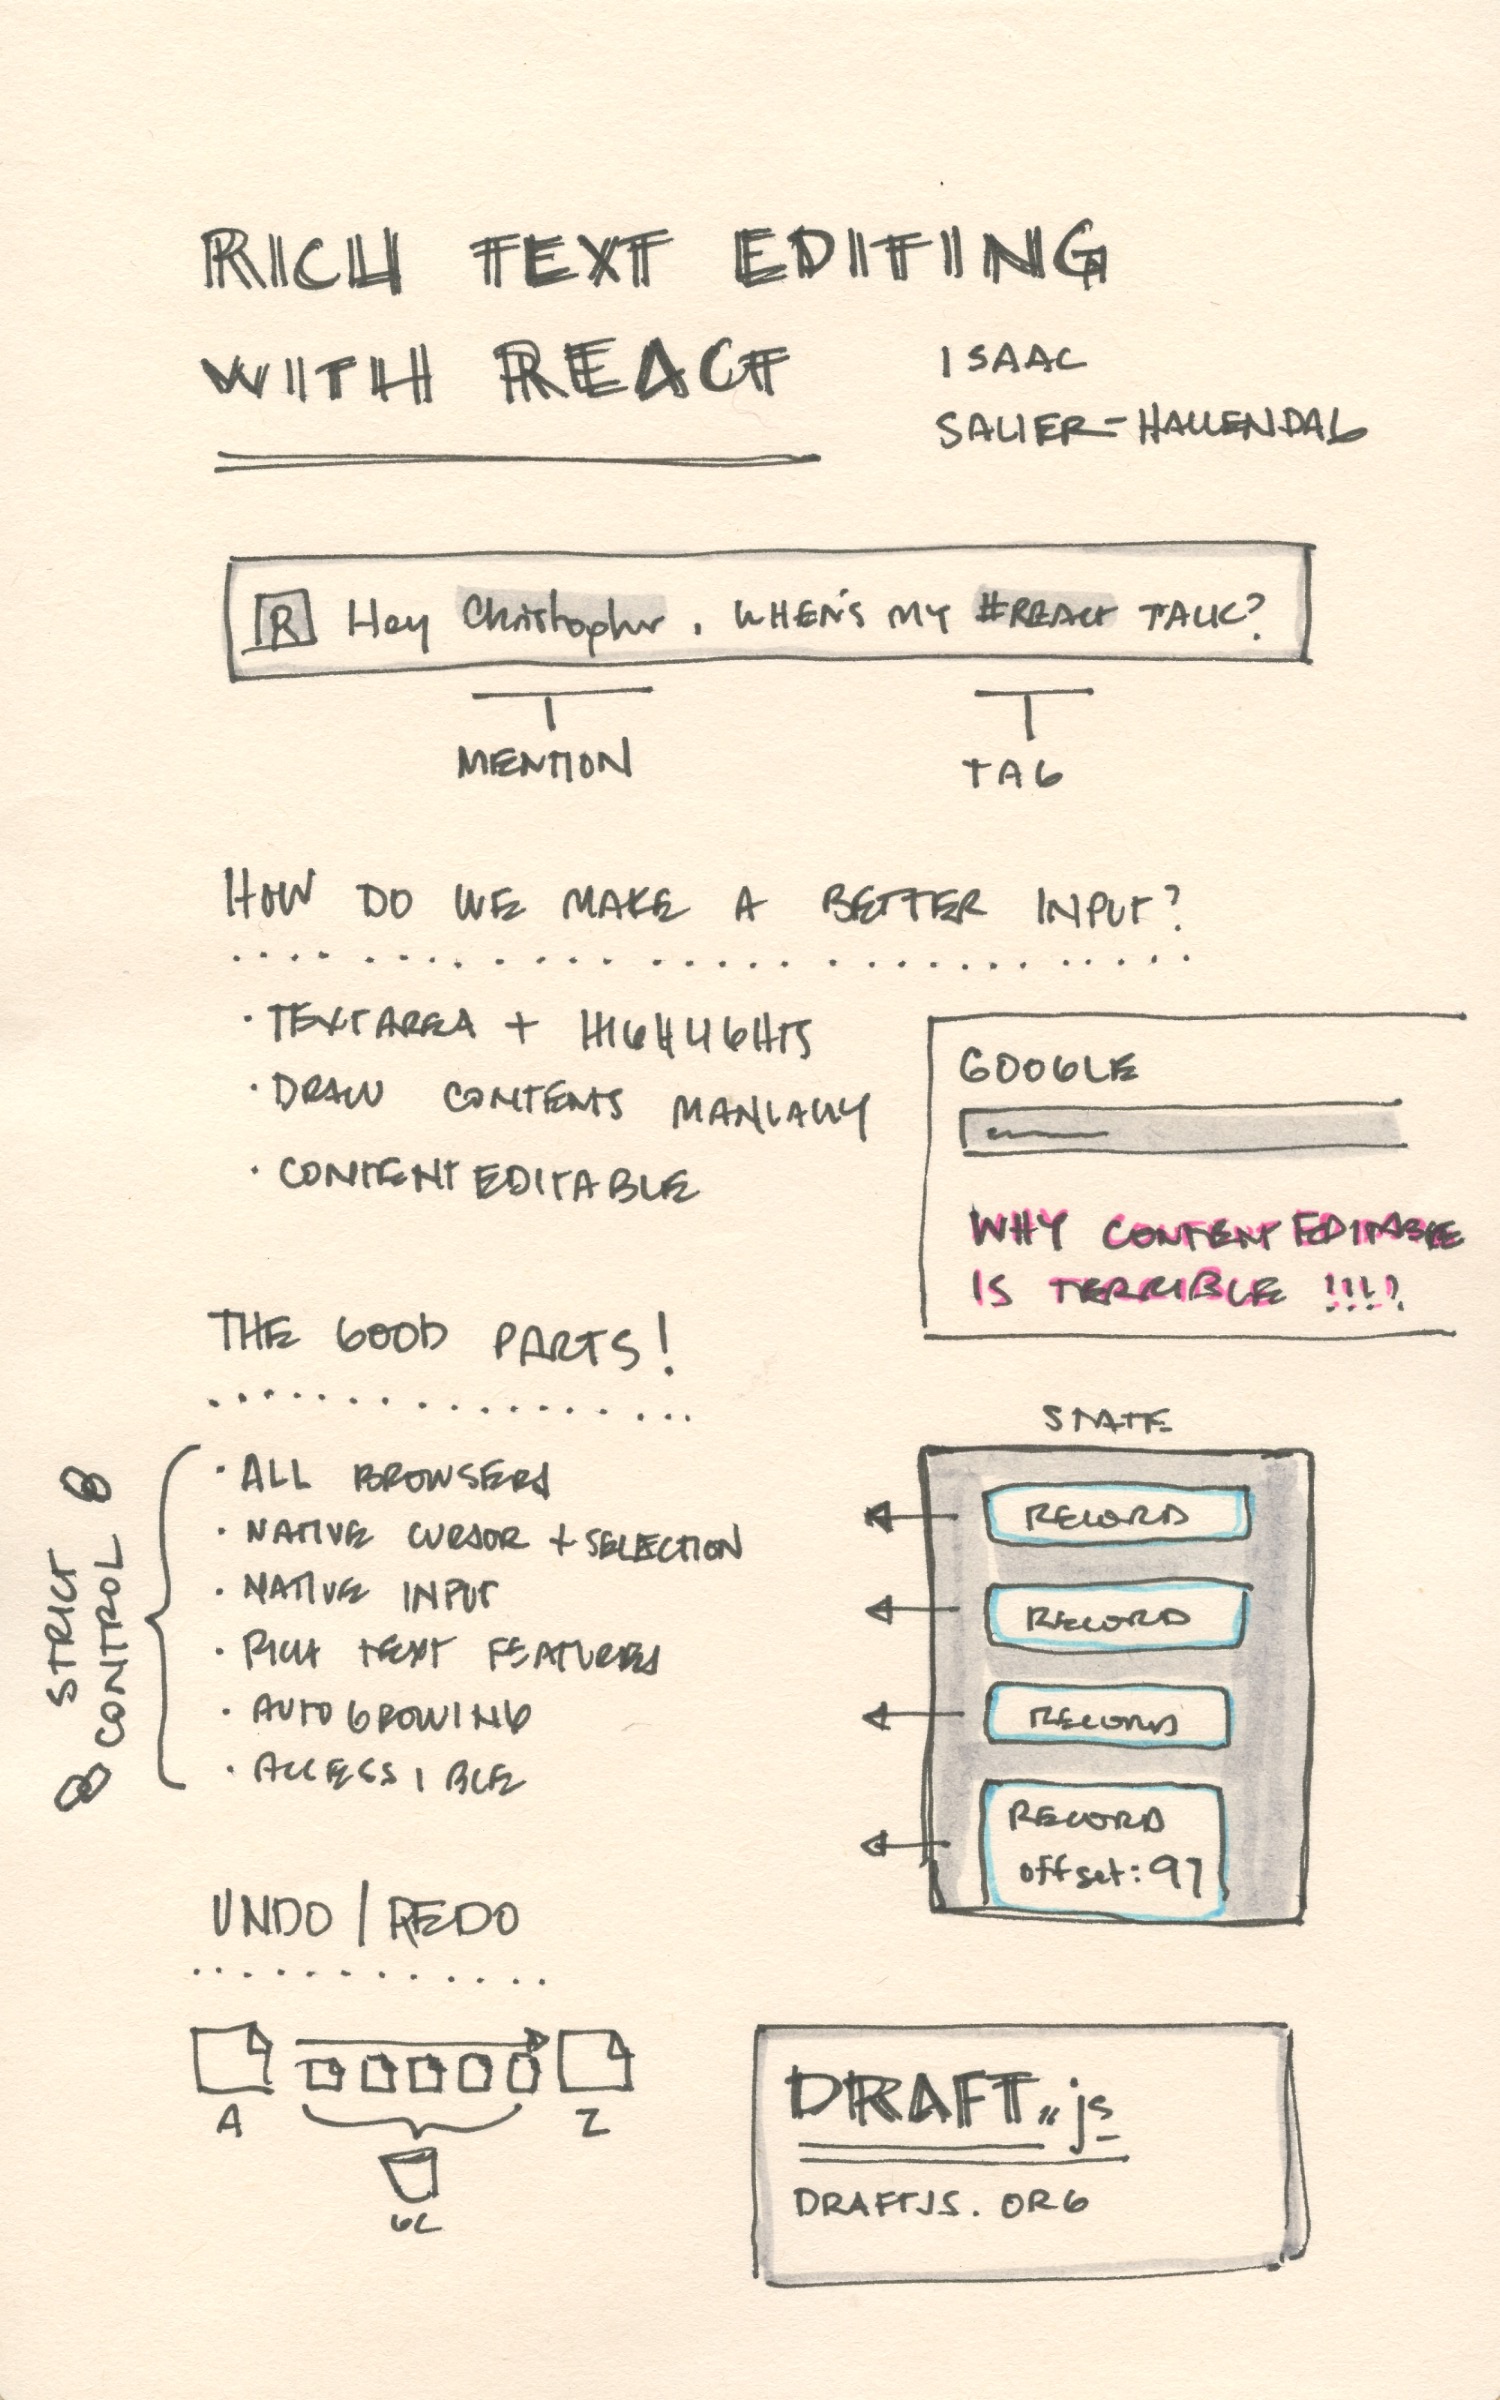 RICH TEXT EDITING
WITH REACT
ISAAC
SALIER-HALLENDAL
R Hey Christopher, WHEN'S MY #REACT TALK?
MENTION
TAG
HOW DO WE MAKE A BETTER INPUT?
· TEXTAREA + HIGHLIGHTS
· DRAW CONTENTS MANUALLY
· CONTENTEDITABLE
GOOGLE
WHY CONTENTEDITABLE
IS TERRIBLE !!!!
THE GOOD PARTS!
STRICT
CONTROL
· ALL BROWSERS
· NATIVE CURSOR + SELECTION
· NATIVE INPUT
· RICH TEXT FEATURES
· AUTOGROWING
· ACCESSIBLE
STATE
RECORD
RECORD
RECORD
RECORD
offset: 97
UNDO / REDO
A
Z
GC
DRAFT.js
DRAFTJS.ORG